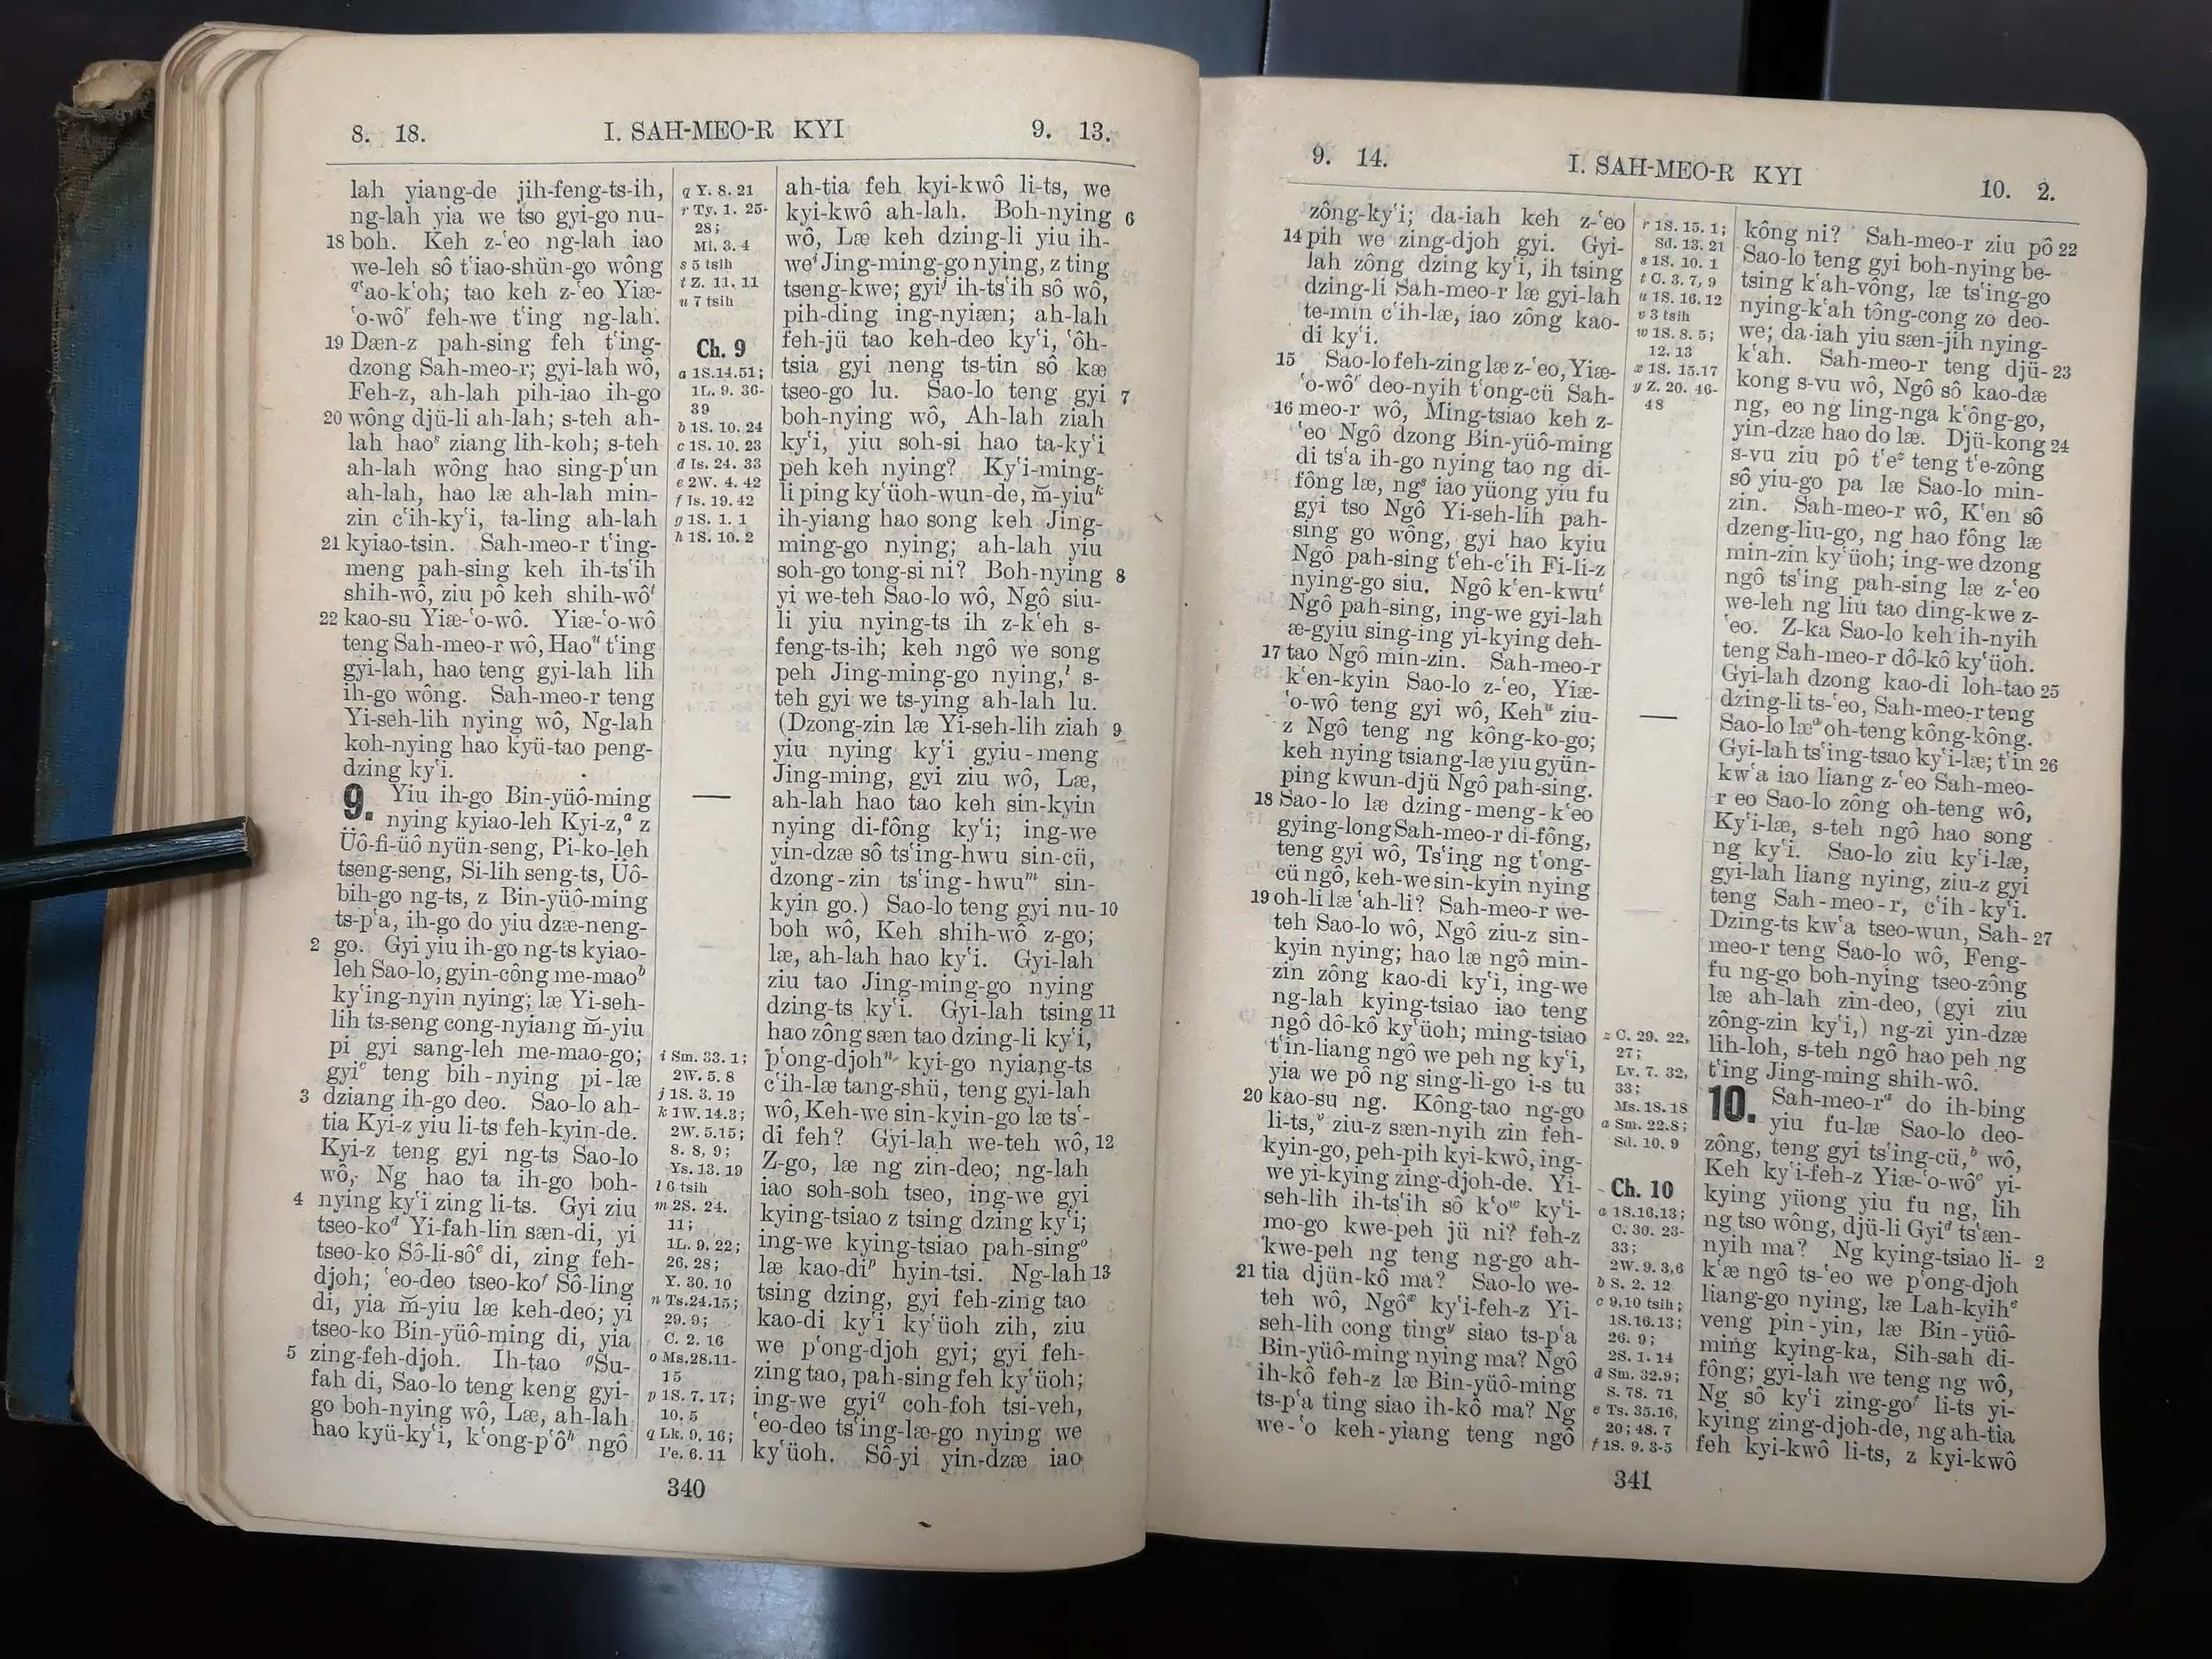 8. 18.
I. SAH-MEO-R KYI
9. 13.
lah yiang-de jih-feng-ts-ih,
ng-lah yia we tso gyi-go nu-
18 boh. Keh z-ʻeo ng-lah iao
we-leh sô tʻiao-shün-go wông
qʻao-kʻoh; tao keh z-ʻeo Yiæ-
ʻo-wôr feh-we tʻing ng-lah.
19 Dæn-z pah-sing feh tʻing-
dzong Sah-meo-r; gyi-lah wô,
Feh-z, ah-lah pih-iao ih-go
20 wông djü-li ah-lah; s-teh ah-
lah haos ziang lih-koh; s-teh
ah-lah wông hao sing-pʻun
ah-lah, hao læ ah-lah min-
zin cʻih-kyʻi, ta-ling ah-lah
21 kyiao-tsin. Sah-meo-r tʻing-
meng pah-sing keh ih-tsʻih
shih-wô, ziu pô keh shih-wôt
22 kao-su Yiæ-ʻo-wô. Yiæ-ʻo-wô
teng Sah-meo-r wô, Haou tʻing
gyi-lah, hao teng gyi-lah lih
ih-go wông. Sah-meo-r teng
Yi-seh-lih nying wô, Ng-lah
koh-nying hao kyü-tao peng-
dzing kyʻi.
9. Yiu ih-go Bin-yüô-ming
nying kyiao-leh Kyi-z,a z
Üô-fi-üô nyün-seng, Pi-ko-leh
tseng-seng, Si-lih seng-ts, Üô-
bih-go ng-ts, z Bin-yüô-ming
ts-pʻa, ih-go do yiu dzæ-neng-
2 go. Gyi yiu ih-go ng-ts kyiao-
leh Sao-lo, gyin-công me-maob
kyʻing-nyin nying; læ Yi-seh-
lih ts-seng cong-nyiang m̆-yiu
pi gyi sang-leh me-mao-go;
gyic teng bih-nying pi-læ
3 dziang ih-go deo. Sao-lo ah-
tia Kyi-z yiu li-ts feh-kyin-de.
Kyi-z teng gyi ng-ts Sao-lo
wô, Ng hao ta ih-go boh-
4 nying kyʻi zing li-ts. Gyi ziu
tseo-kod Yi-fah-lin sæn-di, yi
tseo-ko Sô-li-sôe di, zing feh-
djoh; ʻeo-deo tseo-kof Sô-ling
di, yia m̆-yiu læ keh-deo; yi
tseo-ko Bin-yüô-ming di, yia
5 zing-feh-djoh. Ih-tao gSu-
fah di, Sao-lo teng keng gyi-
go boh-nying wô, Læ, ah-lah
hao kyü-kyʻi, kʻong-pʻôh ngô
q Y. 8. 21
r Ty. 1. 25-
28;
Mi. 3. 4
s 5 tsih
t Z. 11. 11
u 7 tsih
Ch. 9
a 1S.14.51;
1L. 9. 36-
39
b 1S. 10. 24
c 1S. 10. 23
d Is. 24. 33
e 2W. 4. 42
f Is. 19. 42
g 1S. 1. 1
h 1S. 10. 2
i Sm. 33. 1;
2W. 5. 8
j 1S. 3. 19
k 1W. 14.3;
2W. 5.15;
8. 8, 9;
Ys. 13. 19
l 6 tsih
m 2S. 24.
11;
1L. 9. 22;
26, 28;
Y. 30. 10
n Ts.24.15;
29. 9;
C. 2. 16
o Ms.28.11-
15
p 1S. 7. 17;
10. 5
q Lk. 9. 16;
Pe. 6. 11
ah-tia feh kyi-kwô li-ts, we
kyi-kwô ah-lah. Boh-nying 6
wô, Læ keh dzing-li yiu ih-
wei Jing-ming-go nying, z ting
tseng-kwe; gyij ih-tsʻih sô wô,
pih-ding ing-nyiæn; ah-lah
feh-jü tao keh-deo kyʻi, ʻôh-
tsia gyi neng ts-tin sô kæ
tseo-go lu. Sao-lo teng gyi 7
boh-nying wô, Ah-lah ziah
kyʻi, yiu soh-si hao ta-kyʻi
peh keh nying? Kyʻi-ming-
li ping kyʻüoh-wun-de, m̆-yiuk
ih-yiang hao song keh Jing-
ming-go nying; ah-lah yiu
soh-go tong-si ni? Boh-nying 8
yi we-teh Sao-lo wô, Ngô siu-
li yiu nying-ts ih z-kʻeh s-
feng-ts-ih; keh ngô we song
peh Jing-ming-go nying,l s-
teh gyi we ts-ying ah-lah lu.
(Dzong-zin læ Yi-seh-lih ziah 9
yiu nying kyʻi gyiu-meng
Jing-ming, gyi ziu wô, Læ,
ah-lah hao tao keh sin-kyin
nying di-fông kyʻi; ing-we
yin-dzæ sô tsʻing-hwu sin-cü,
dzong-zin tsʻing-hwum sin-
kyin go.) Sao-lo teng gyi nu- 10
boh wô, Keh shih-wô z-go;
læ, ah-lah hao kyʻi. Gyi-lah
ziu tao Jing-ming-go nying
dzing-ts kyʻi. Gyi-lah tsing 11
hao zông sæn tao dzing-li kyʻi,
pʻong-djohn kyi-go nyiang-ts
cʻih-læ tang-shü, teng gyi-lah
wô, Keh-we sin-kyin-go læ tsʻ-
di feh? Gyi-lah we-teh wô, 12
Z-go, læ ng zin-deo; ng-lah
iao soh-soh tseo, ing-we gyi
kying-tsiao z tsing dzing kyʻi;
ing-we kying-tsiao pah-singo
læ kao-dip hyin-tsi. Ng-lah 13
tsing dzing, gyi feh-zing tao
kao-di kyʻi kyʻüoh zih, ziu
we pʻong-djoh gyi; gyi feh-
zing tao, pah-sing feh kyʻüoh;
ing-we gyiq coh-foh tsi-veh,
ʻeo-deo tsʻing-læ-go nying we
kyʻüoh. Sô-yi yin-dzæ iao
340
9. 14.
I. SAH-MEO-R KYI
10. 2.
zông-kyʻi; da-iah keh z-ʻeo
14 pih we zing-djoh gyi. Gyi-
lah zông dzing kyʻi, ih tsing
dzing-li Sah-meo-r læ gyi-lah
te-min cʻih-læ, iao zông kao-
di kyʻi.
15 Sao-lo feh-zing læ z-ʻeo, Yiæ-
ʻo-wôr deo-nyih tʻong-cü Sah-
16 meo-r wô, Ming-tsiao keh z-
ʻeo Ngô dzong Bin-yüô-ming
di tsʻa ih-go nying tao ng di-
fông læ, ngs iao yüong yiu fu
gyi tso Ngô Yi-seh-lih pah-
sing go wông, gyi hao kyiu
Ngô pah-sing tʻeh-cʻih Fi-li-z
nying-go siu. Ngô kʻen-kwut
Ngô pah-sing, ing-we gyi-lah
æ-gyiu sing-ing yi-kying deh-
17 tao Ngô min-zin. Sah-meo-r
kʻen-kyin Sao-lo z-ʻeo, Yiæ-
ʻo-wô teng gyi wô, Kehu ziu-
z Ngô teng ng kông-ko-go;
keh nying tsiang-læ yiu gyün-
ping kwun-djü Ngô pah-sing.
18 Sao-lo læ dzing-meng-kʻeo
gying-long Sah-meo-r di-fông,
teng gyi wô, Tsʻing ng tʻong-
cü ngô, keh-we sin-kyin nying
19 oh-li læ ʻah-li? Sah-meo-r we-
teh Sao-lo wô, Ngô ziu-z sin-
kyin nying; hao læ ngô min-
zin zông kao-di kyʻi, ing-we
ng-lah kying-tsiao iao teng
ngô dô-kô kyʻüoh; ming-tsiao
tʻin-liang ngô we peh ng kyʻi,
yia we pô ng sing-li-go i-s tu
20 kao-su ng. Kông-tao ng-go
li-ts,v ziu-z sæn-nyih zin feh-
kyin-go, peh-pih kyi-kwô, ing-
we yi-kying zing-djoh-de. Yi-
seh-lih ih-tsʻih sô kʻow kyʻi-
mo-go kwe-peh jü ni? feh-z
kwe-peh ng teng ng-go ah-
21 tia djün-kô ma? Sao-lo we-
teh wô, Ngôx kyʻi-feh-z Yi-
seh-lih cong tingy siao ts-pʻa
Bin-yüô-ming nying ma? Ngô
ih-kô feh-z læ Bin-yüô-ming
ts-pʻa ting siao ih-kô ma? Ng
we-ʻo keh-yiang teng ngô
r 1S. 15. 1;
Sd. 13. 21
s 1S. 10. 1
t C. 3. 7, 9
u 1S. 16. 12
v 3 tsih
w 1S. 8. 5;
12. 13
x 1S. 15.17
y Z. 20. 46-
48
z C. 29. 22,
27;
Lv. 7. 32,
33;
Ms. 18. 18
a Sm. 22.8;
Sd. 10. 9
Ch. 10
a 1S.16.13;
C. 30. 23-
33;
2W. 9. 3,6
b S. 2. 12
c 9,10 tsih;
1S.16.13;
26. 9;
2S. 1. 14
d Sm. 32.9;
S. 78. 71
e Ts. 35.16,
20; 48. 7
f 1S. 9. 3-5
kông ni? Sah-meo-r ziu pô 22
Sao-lo teng gyi boh-nying be-
tsing kʻah-vông, læ tsʻing-go
nying-kʻah tông-cong zo deo-
we; da-iah yiu sæn-jih nying-
kʻah. Sah-meo-r teng djü- 23
kong s-vu wô, Ngô sô kao-dæ
ng, eo ng ling-nga kʻông-go,
yin-dzæ hao do læ. Djü-kong 24
s-vu ziu pô tʻez teng tʻe-zông
sô yiu-go pa læ Sao-lo min-
zin. Sah-meo-r wô, Kʻen sô
dzeng-liu-go, ng hao fông læ
min-zin kyʻüoh; ing-we dzong
ngô tsʻing pah-sing læ z-ʻeo
we-leh ng liu tao ding-kwe z-
ʻeo. Z-ka Sao-lo keh ih-nyih
teng Sah-meo-r dô-kô kyʻüoh.
Gyi-lah dzong kao-di loh-tao 25
dzing-li ts-ʻeo, Sah-meo-r teng
Sao-lo læa oh-teng kông-kông.
Gyi-lah tsʻing-tsao kyʻi-læ; tʻin 26
kwʻa iao liang z-ʻeo Sah-meo-
r eo Sao-lo zông oh-teng wô,
Kyʻi-læ, s-teh ngô hao song
ng kyʻi. Sao-lo ziu kyʻi-læ,
gyi-lah liang nying, ziu-z gyi
teng Sah-meo-r, cʻih-kyʻi.
Dzing-ts kwʻa tseo-wun, Sah- 27
meo-r teng Sao-lo wô, Feng-
fu ng-go boh-nying tseo-zông
læ ah-lah zin-deo, (gyi ziu
zông-zin kyʻi,) ng-zi yin-dzæ
lih-loh, s-teh ngô hao peh ng
tʻing Jing-ming shih-wô.
10. Sah-meo-ra do ih-bing
yiu fu-læ Sao-lo deo-
zông, teng gyi tsʻing-cü,b wô,
Keh kyʻi-feh-z Yiæ-ʻo-wôc yi-
kying yüong yiu fu ng, lih
ng tso wông, djü-li Gyid tsʻæn-
nyih ma? Ng kying-tsiao li- 2
kʻæ ngô ts-ʻeo we pʻong-djoh
liang-go nying, læ Lah-kyihe
veng pin-yin, læ Bin-yüô-
ming kying-ka, Sih-sah di-
fông; gyi-lah we teng ng wô,
Ng sô kyʻi zing-gof li-ts yi-
kying zing-djoh-de, ng ah-tia
feh kyi-kwô li-ts, z kyi-kwô
341